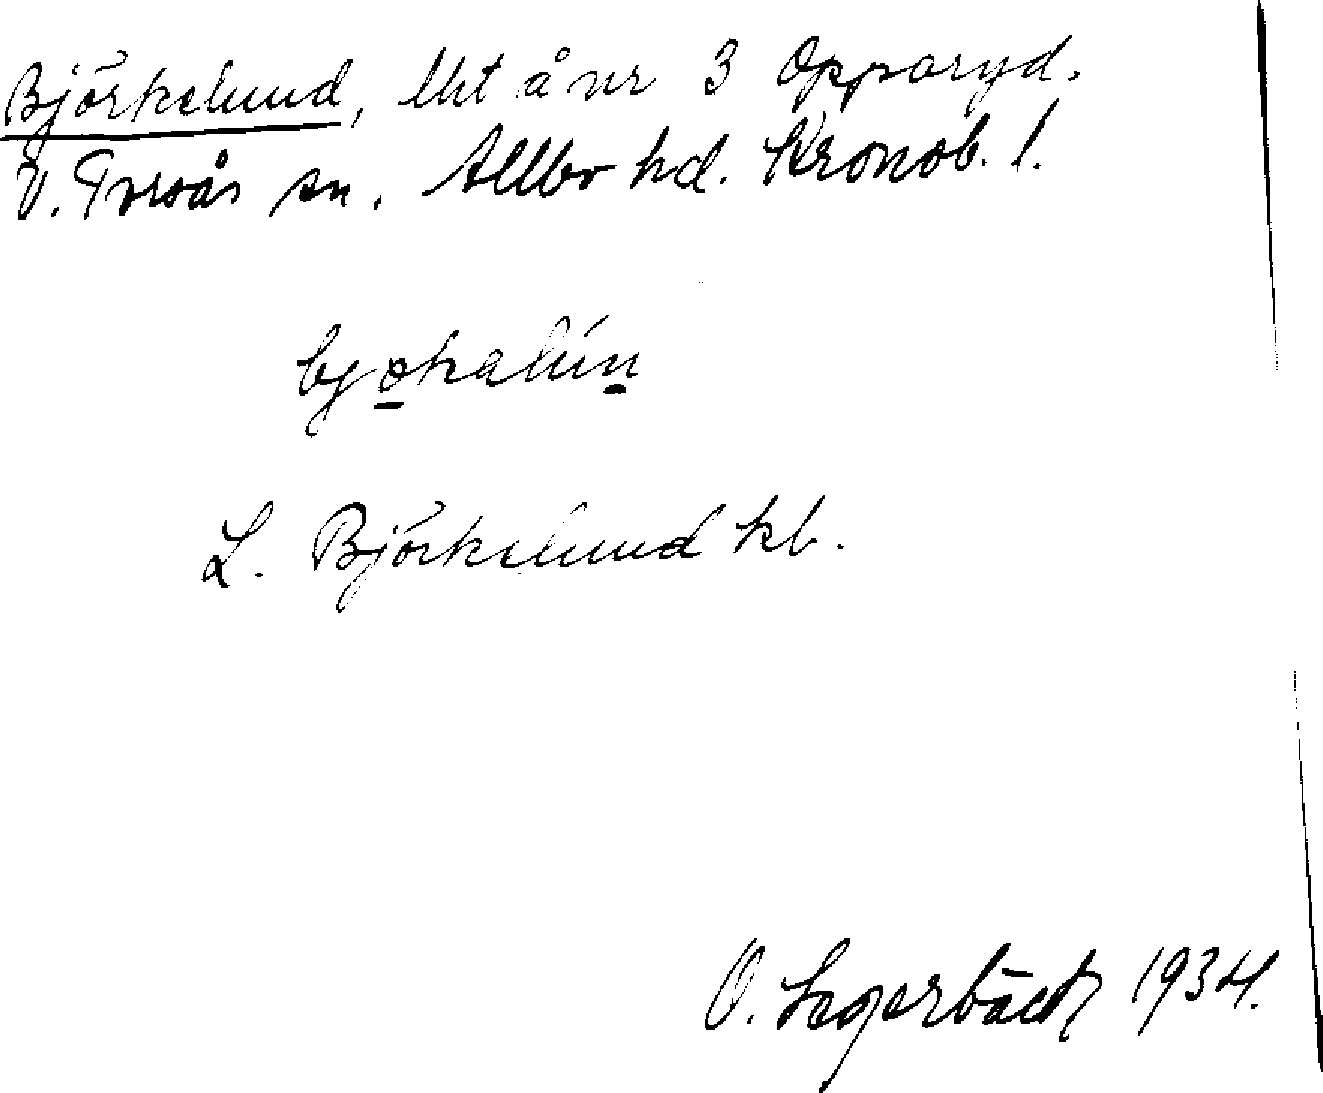 Björkelund, lht å nr 3 Opparyd.
V. Torsås sn. Allbo hd. Kronob. l.
bjökalún
L. Björkelund kb.
O. Segerbäck 1934.